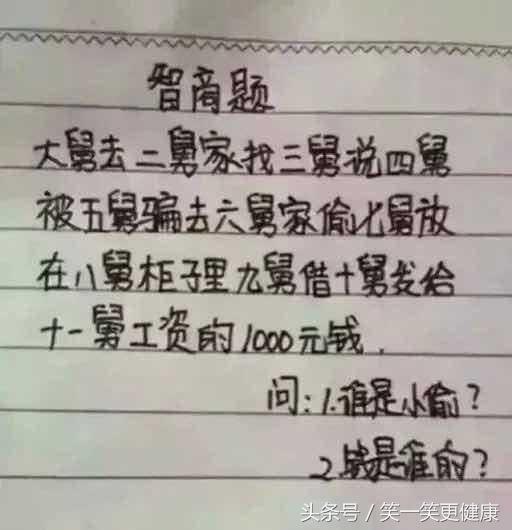 智商题
大舅去二舅家找三舅说四舅
被五舅骗去六舅家偷七舅放
在八舅柜子里九舅借十舅发给
十一舅工资的1000元钱.
问:1.谁是小偷?
2.钱是谁的?
头条号/笑一笑更健康